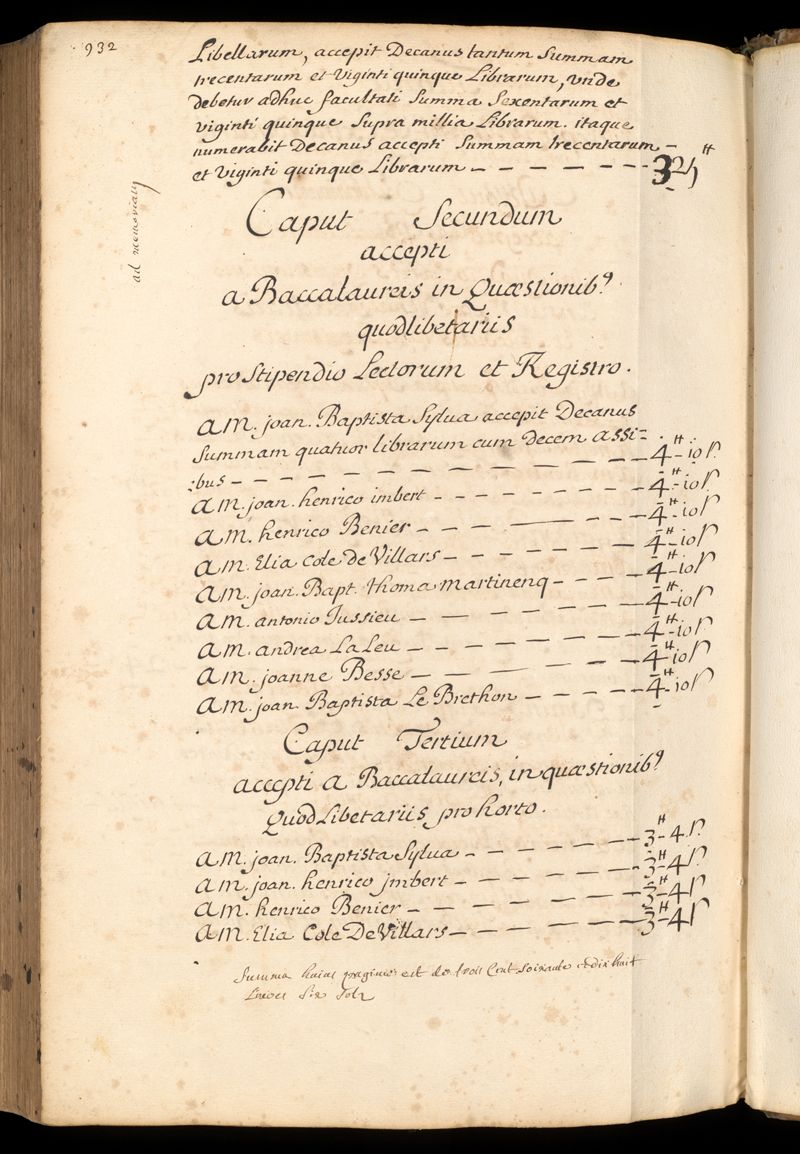 932
Libellarum, accepit Decanus tantum Summam
trecentarum et Viginti quinque Librarum, unde
debetur adhuc facultati Summa Sexentarum et
viginti quinque Supra millia Librarum. itaque
numerabit Decanus accepti Summam trecentarum –
et Viginti quinque Librarum – – – – – – – 325 ᴴ
ad memoriam
Caput Secundum
accepti
a Baccalaureis in Quæstionib⁹
quodlibetariis
pro Stipendio Lectorum et Registro.
a M. joan. Baptista Sylva accepit Decanus
Summam quatuor librarum cum Decem assi=
:bus – – – – – – – – – – 4ᴴ-10ſ.
a M. joan. henrico imbert – – – – – – – 4ᴴ-10ſ
a M. henrico Benier – – – – – – – 4ᴴ-10ſ
a M. Elia Cole De Villars – – – – – – 4ᴴ-10ſ
a M. joan. Bapt. thoma martinenq – – – – 4ᴴ-10ſ
a M. antonio Jussieu – – – – – – 4ᴴ-10ſ
a M. andrea La Leu – – – – – – – 4ᴴ-10ſ
a M. joanne Besse – – – – – – 4ᴴ-10ſ
a M. joan Baptista Le Brethon – – – – – 4ᴴ-10ſ
Caput Tertium
accepti a Baccalaureis, in quæstionib⁹
Quod Libetariis pro horto.
a M. joan. Baptista Sylva – – – – – – 3ᴴ-4ſ.
a M. joan. henrico jmbert – – – – – – 3ᴴ-4ſ
a M. henrico Benier – – – – – – – 3ᴴ-4ſ
a M. Elia Cole De Villars – – – – – – 3ᴴ-4ſ
Summa huius paginæ est de trois Cent Soixante et dix huit
Livres Six Solz